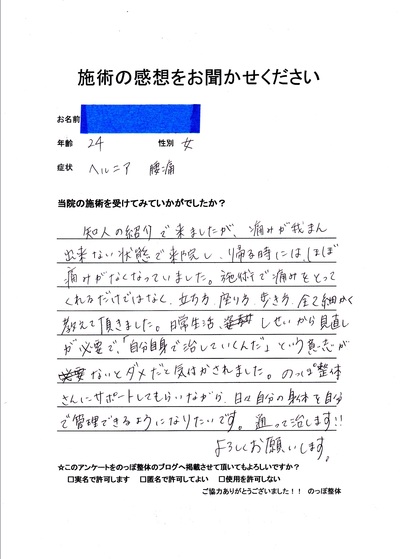 施術の感想をお聞かせください
お名前
年齢 24 性別 女
症状 ヘルニア 腰痛
当院の施術を受けてみていかがでしたか?
知人の紹介で来ましたが、痛みが我まん
出来ない状態で来院し、帰る時には、ほぼ
痛みがなくなっていました。施術で痛みをとって
くれるだけではなく、立ち方、座り方、歩き方、全て細かく
教えて頂きました。日常生活、しせいから見直し
が必要で、「自分自身で治していくんだ」という意志が
ないとダメだと気付かされました。のっぽ整体
さんにサポートしてもらいながら、日々自分の身体を自分
で管理できるようになりたいです。通って治します!!
よろしくお願いします。
☆このアンケートをのっぽ整体のブログへ掲載させて頂いてもよろしいですか?
□実名で許可します □匿名で許可してよい □使用を許可しない
ご協力ありがとうございました!! のっぽ整体